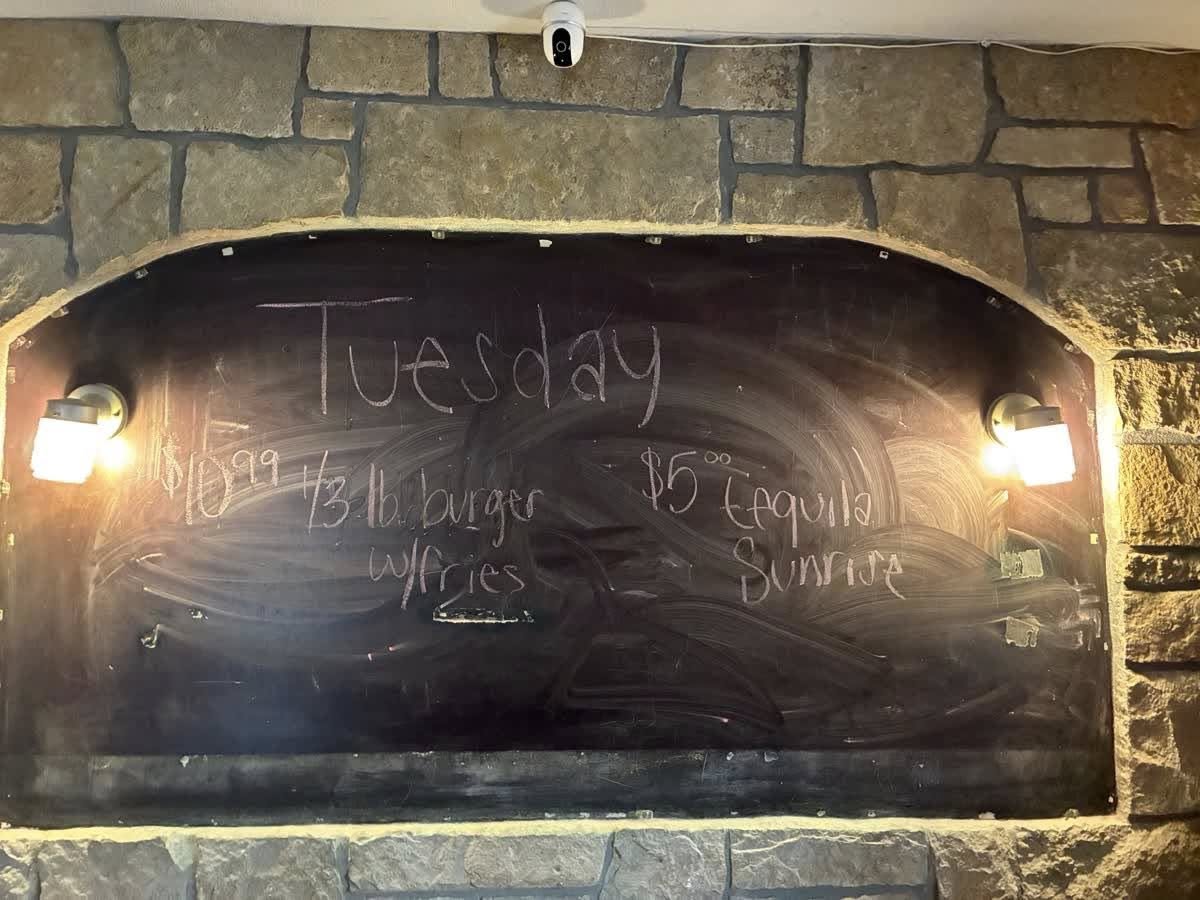 Tuesday
$10.99 1/3 lb. burger
w/fries
$5.00 tequila
Sunrise